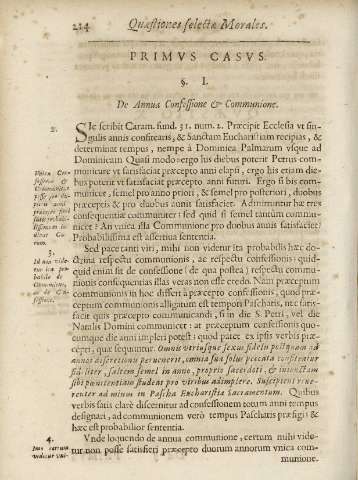 214 Quæstiones selectæ Morales.
PRIMVS CASVS.
§. I.
De Annua Confessione & Communione.
2.
SIc scribit Caram. fund. 51. num. 2. Præcipit Ecclesia vt sin-
gulis annis confitearis, & Sanctum Eucharistiam recipias, &
determinat tempus, nempe à Dominica Palmarum vsque ad
Dominicam Quasi modo: ergo his diebus poterit Petrus com-
municare vt satisfaciat præcepto anni elapsi, ergo his etiam die-
bus poterit vt satisfaciat præcepto anni futuri. Ergo si bis com-
municet, semel pro anno priori, & semel pro posteriori, duobus
præceptis & pro duobus annis satisfaciet. Admittuntur hæ tres
consequentiæ communiter: sed quid si semel tantùm commu-
nicet? An vnica illa Communione pro duobus annis satisfaciet?
Probabilissima est assertiua sententia.
3.
Sed pace tanti viri, mihi non videtur ita probabilis hæc do-
ctrina respectu communionis, ac respectu confessionis: quid-
quid enim sit de confessione (de qua postea) respectu commu-
nionis consequentias illas veras non esse credo. Nam præceptum
communionis in hoc differt à præcepto confessionis, quod præ-
ceptum communionis alligatum est tempori Paschatis, nec satis-
facit quis præcepto communicandi, si in die S. Petri, vel die
Natalis Domini communicet: at præceptum confessionis quo-
cumque die anni impleri potest: quod patet ex ipsis verbis præ-
cepti, quæ sequuntur. Omnis vtriusque sexus fidelis postquam ad
annos discretionis peruenerit, omnia sua solus peccata confiteatur
fideliter, saltem semel in anno, proprio sacerdoti, & iniunctam
sibi pænitentiam studeat pro viribus adimplere. Suscipiens reue-
renter ad minus in Pascha Eucharistiæ Sacramentum. Quibus
verbis satis clarè discernitur ad confessionem totum anni tempus
designari, ad communionem verò tempus Paschatis præfigi: &
hæc est probabilior sententia.
4.
Vnde loquendo de annua communione, certum mihi vide-
tur non posse satisfieri præcepto duorum annorum vnica com-
munione.